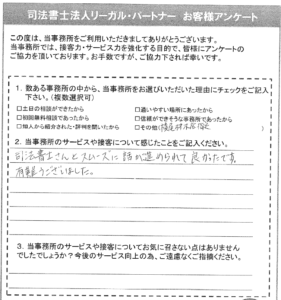 司法書士法人リーガル・パートナー お客様アンケート
この度は、当事務所をご利用いただきましてありがとうございます。
当事務所では、接客力・サービス力を強化する目的で、皆様にアンケートの
ご協力を頂いております。お手数ですが、ご協力下されば幸いです。
1. 数ある事務所の中から、当事務所をお選びいただいた理由にチェックをご記入
下さい。(複数選択可)
□土日の相談ができたから
□通いやすい場所にあったから
□初回無料相談であったから
□信頼ができそうな事務所であったから
□知人から紹介された・評判を聞いたから
□その他(
2. 当事務所のサービスや接客について感じたことをご記入ください。
司法書士さんとスムーズに話が進められて良かったです
有難うございました。
3. 当事務所のサービスや接客についてお気に召さない点はありませんで
したでしょうか?今後のサービス向上の為、ご遠慮なくご指摘ください。